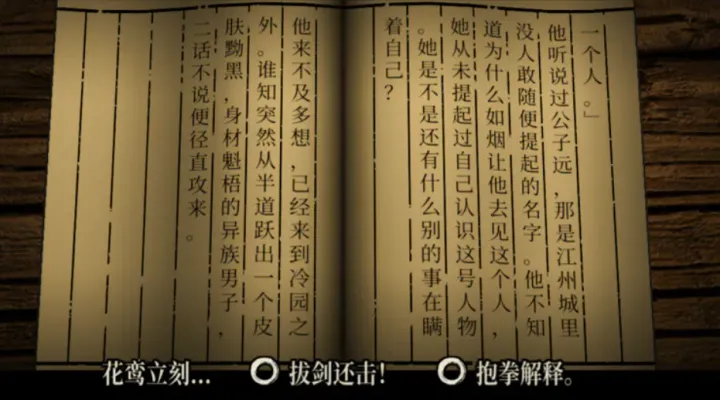 一个人。」
他听说过公子远，那是江州城里
没人敢随便提起的名字。他不知
道为什么如烟让他去见这个人，
她从未提起过自己认识这号人物
。她是不是还有什么别的事在瞒
着自己？
他来不及多想，已经来到冷园之
外。谁知突然从半道跃出一个皮
肤黝黑，身材魁梧的异族男子，
二话不说便径直攻来。
花鸾立刻...
拔剑还击！
抱拳解释。